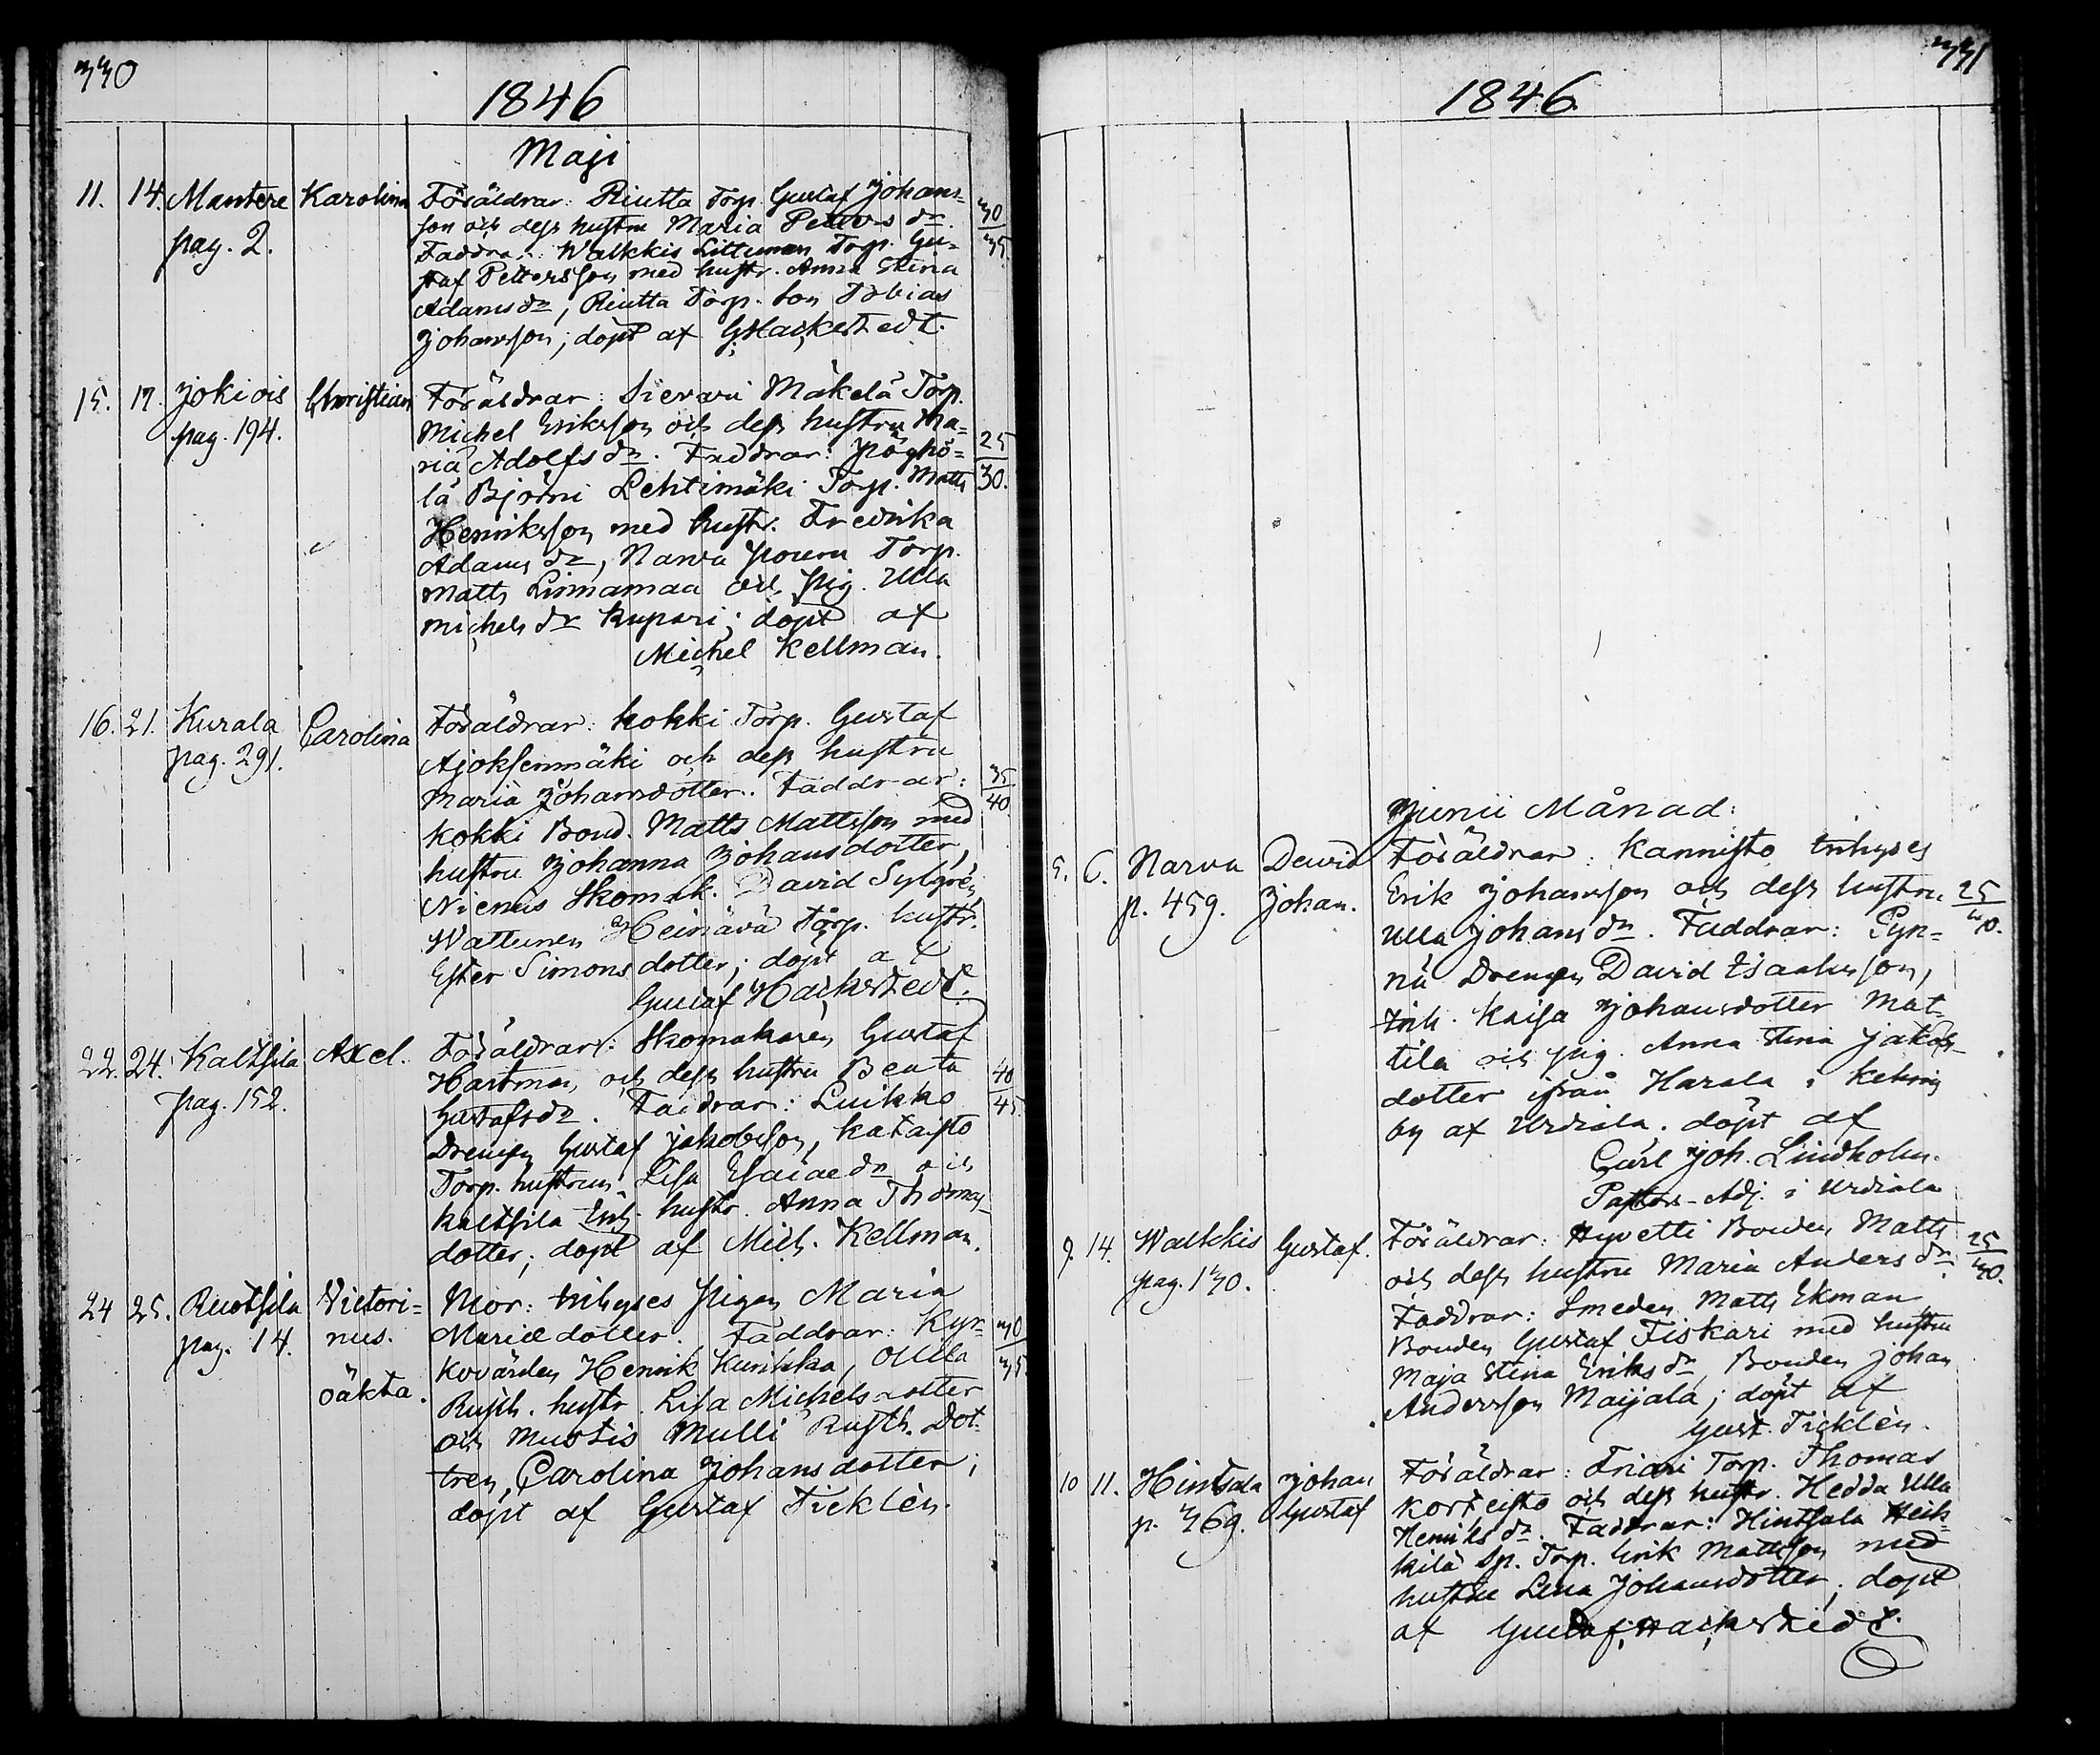 330
1846
Maji
11. 14. Mantere Karolina Föräldrar: Riutta Torp. Gustaf Johans= 30
son och dess hustru Maria Petters dr. 35.
pag. 2. Faddrar: Walkkis Littunen Torp. Gu=
staf Pettersson med hustr. Anna Stina
Adamsdr, Riutta Torp. Son Tobias
Johansson; döpt af G Hackstedt.
15. 17. Jokiois Christian Föräldrar: Sieravi Mäkelä Torp.
pag. 194. Michel Eriksson och dess hustru Ma= 25
ria Adolfs dr. Faddrar: Pöyhö= 30.
lä Björni Lehtimäki Torp. Matts
Henriksson med hustr. Fredrika
Adams dr, Narva Torp.
Matts Linnamaa och pig. Ulla
Michels dr Kupari; döpt af
Michel Kellman.
16. 21. Kurala Carolina Föräldrar: Kokki Torp. Gustaf
pag. 291. Ajoksenmäki och dess hustru 35
Maria Johansdotter. Faddrar: 40
Kokki Bond. Matts Mattsson med
hustru Johanna Johansdotter,
Skomak. David Sylgrén
Wattunen Heinävä Torp. hustr.
Ester Simonsdotter; döpt af
Gustaf Hackstedt.
22. 24. Kaltsila Axel. Föräldrar: Skomakaren Gustaf
pag. 152. Hartman och dess hustru Beata 40
Gustafsdr. Faddrar: Luikko 45
Drengen Gustaf Jakobsson, Kataisto
Torp. hustrun Lisa Esaiaedr och
Kaltsila Inh. hustr. Anna Thomas-
dotter; döpt af Mich. Kellman.
24 25. Ruotsila Victori= Mor: inhyses Pigan Maria
pag. 14. nus. Mariedotter. Faddrar: Kyr= 30
oäkta. kovärden Henrik Kurikka, Ollila 35
Rusth. hustr. Lisa Michelsdotter
och Mustis Mulli Rusth. Dot=
tren, Carolina Johansdotter;
döpt af Gustaf Ticklén.
331
1846
Junii Månad:
5. 6. Narva David Föräldrar: Kannisto inhyses
p. 459. Johan. Erik Johansson och dess hustru 25
Ulla Johansdr. Faddrar: Pyn= 30.
nä Drengen David Isaaksson,
Inh. Kaisa Johansdotter Mat=
tila och pig. Anna Stina Jakobs-
dotter ifrån Harala i Kehrois
by af Urdiala. döpt af
Carl Joh. Lindholm.
Pastors-Adj. i Urdiala
9. 14. Walkkis Gustaf. Föräldrar: Hyvetti Bonden Matts 25
pag. 130. och dess hustru Maria Anders dr. 30.
Faddrar: Smeden Matts Ekman
Bonden Gustaf Fiskari med hustru
Maja Stina Eriks dr, Bonden Johan
Andersson Maijala; döpt af
Gust. Ticklén.
10 11. Hintsala Johan Föräldrar: Friari Torp. Thomas
p. 369. Gustaf Korkeisto och dess hustr. Hedda Ulla
Henriks dr. Faddrar: Hintsala Heik=
kilä Sp. Torp. Erik Mattsson med
hustru Lena Johansdotter; döpt
af Gustaf Hackstedt.